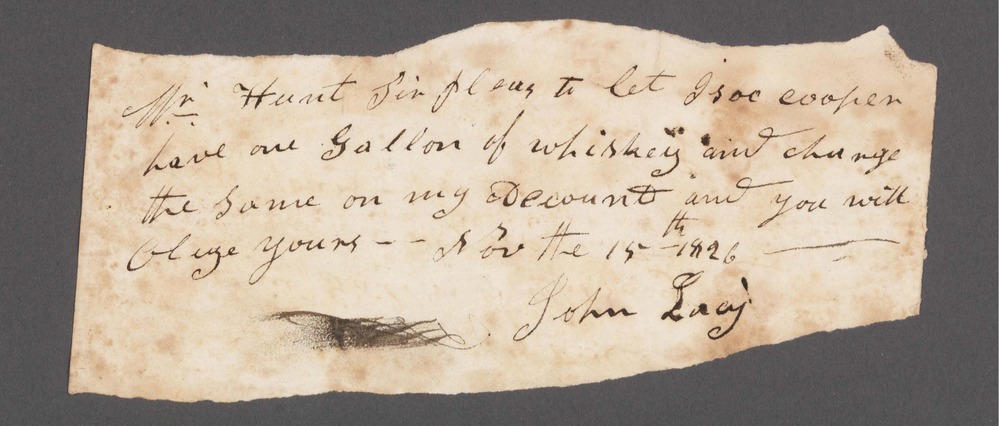 Mr Hunt Sir pleas to let Isoc cooper
have one Gallon of whiskey and charge
the same on my account and you will
Oblige yours - - Nov the 15th 1826
John Lacy